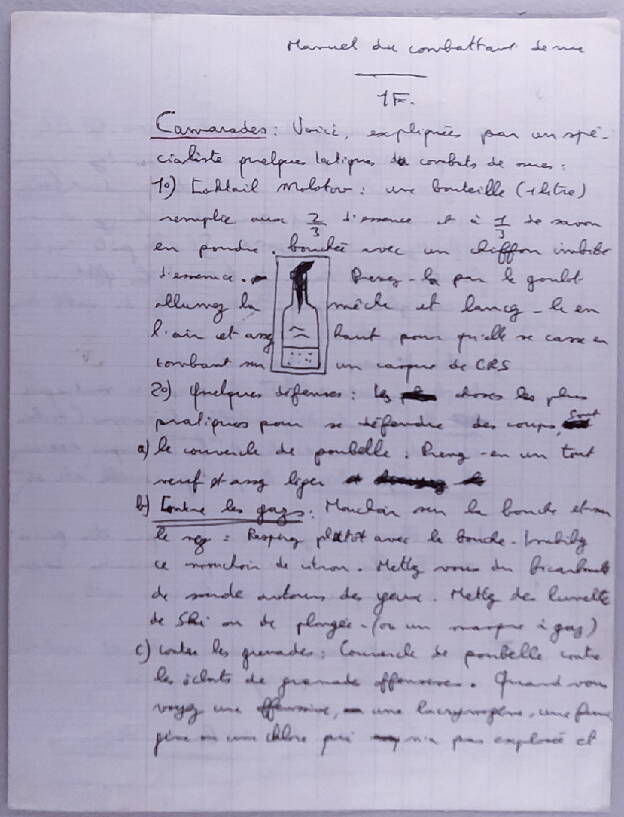 Manuel du combattant de rue
1F.
Camarades : Voici, expliquées par un spé-
cialiste quelques tactiques de combats de rues :
1o) Coktail Molotov : une bouteille (1 litre)
remplie aux 2/3 d'essence et à 1/3 de savon
en poudre, bouchée avec un chiffon imbibé
d'essence. Prenez-la par le goulot
allumez la mèche et lancez-la en
l'air et assez haut pour qu'elle se casse en
tombant sur un casque de CRS
2o) Quelques défenses : Les choses les plus
pratiques pour se défendre des coups, sont
a) le couvercle de poubelle : Prenez-en un tout
neuf et assez léger
b) Contre les gaz : Mouchoir sur la bouche et sur
le nez : Respirez plutôt avec la bouche - Imbibez
ce mouchoir de citron. Mettez vous du bicarbonate
de soude autour des yeux. Mettez des lunettes
de Ski ou de plongée - (ou un masque à gaz)
c) contre les grenades : Couvercle de poubelle contre
les éclats de grenade offensives. Quand vous
voyez une offensive, une lacrymogène, une fumi
gène ou une chlore qui n'a pas explosée et